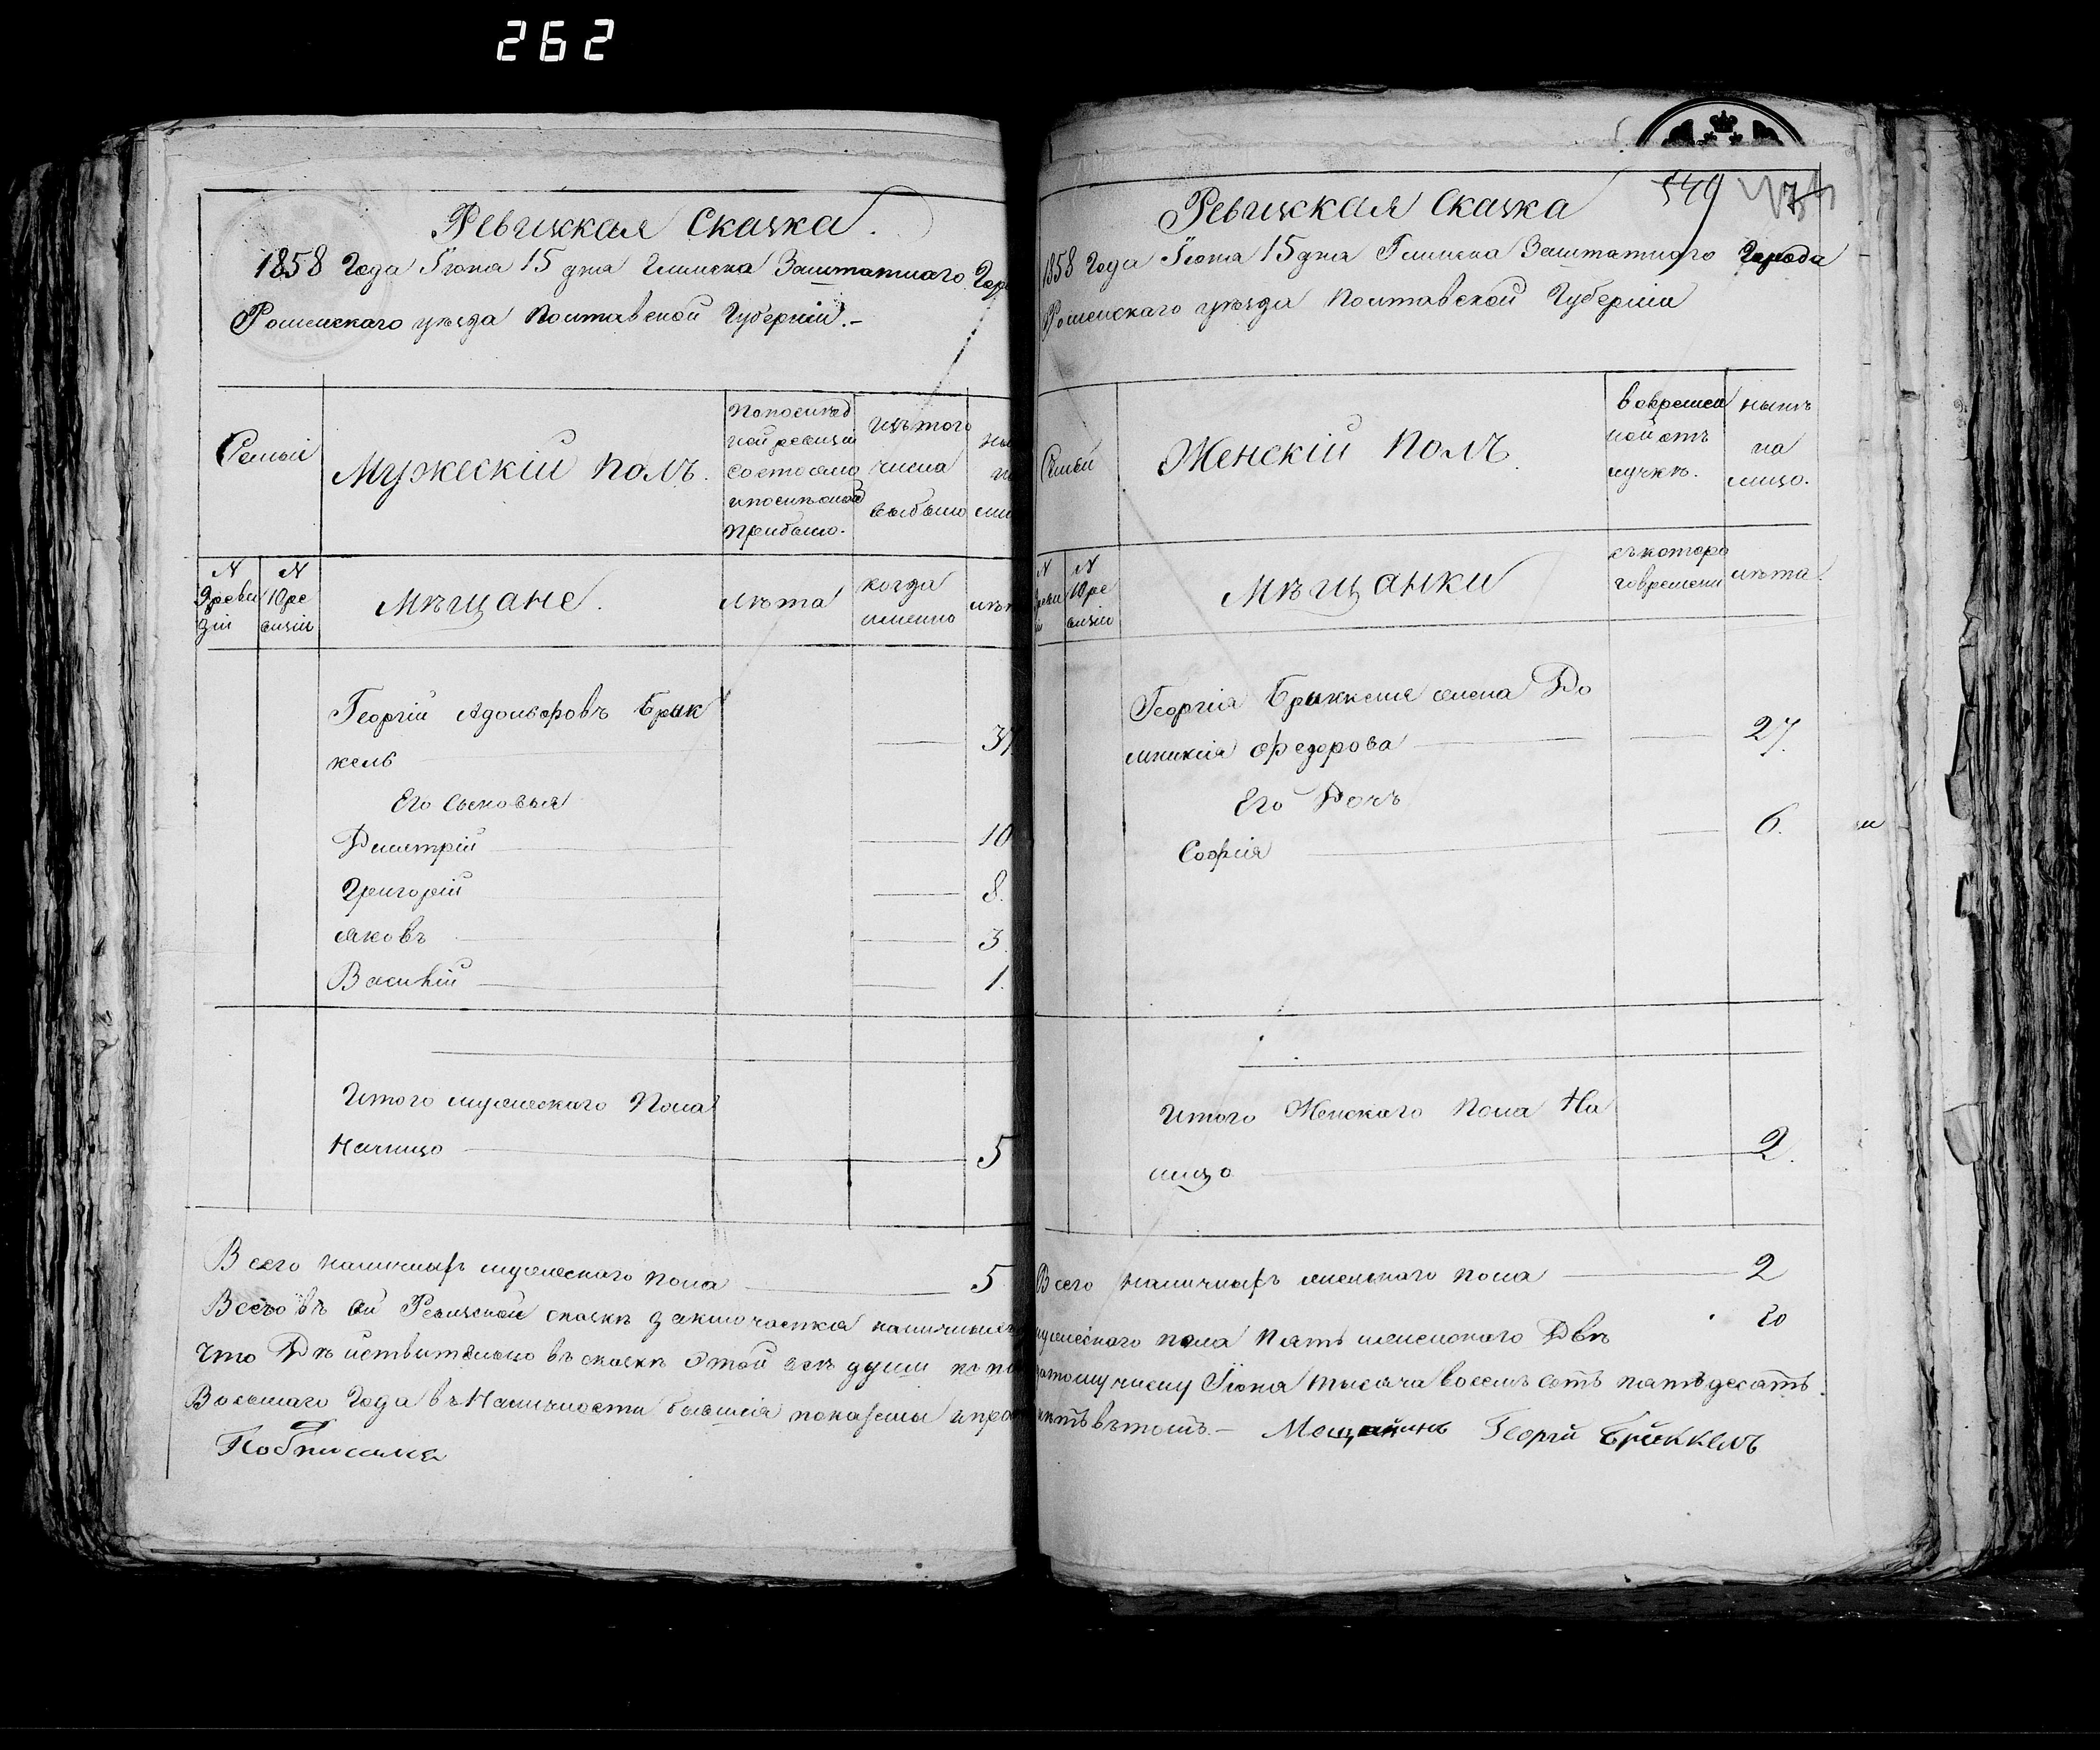 262
Ревизская Сказка.
1858 Года Iюня 15 дня Глинска Заштатнаго Гор
Роменскаго уѣзда Полтавской Губернiи.-
Семьи
Мужескiй полъ.
По послѣд
ней ревизiи
состояло
и послѣ оной
прибыло.
изъ того
числа
выбыло
ны
на
ли
N
9 реви
зiи
N
10 ре
визiи
Мѣщане.
лѣта
когда
именно
лѣт
Георгiй Адольфовъ Брик
кель
37
Его Сыновья
Дмитрiй
10
Григорiй
8.
Яковъ
3.
Василiй
1.
Итого мужескаго Пола
Налицо
5
Всего наличныхъ мужескаго пола 5
Всего въ сей Ревизской сказкѣ заключается наличныхъ
Что Дѣйствительно въ сказкѣ этой всѣ души по
Восьмаго Года въ Наличности бывшiя показаны и пра
Подписался
549
Ревизская Сказка
1858 Года Iюня 15 дня Глинска Заштатнаго Города
Роменскаго уѣзда Полтавской Губернiи
Семьи
Женскiй полъ.
во времен
ной отъ
лучкѣ.
нынѣ
на
лицо.
N
N
10 ре
визiи
Мѣщанки
съ котора
го времени
лѣта.
Георгiя Бриккеля жена До
мникiя Федорова
27.
Его Дочь
Софiя
6.
Итого Женскаго пола На
лицо
2.
Всего наличныхъ женскаго пола 2
мужескаго пола пять женскаго Двѣ
Iюня тысяча восемь сотъ пятьдесятъ
Мещанинъ Георгiй Бриккель